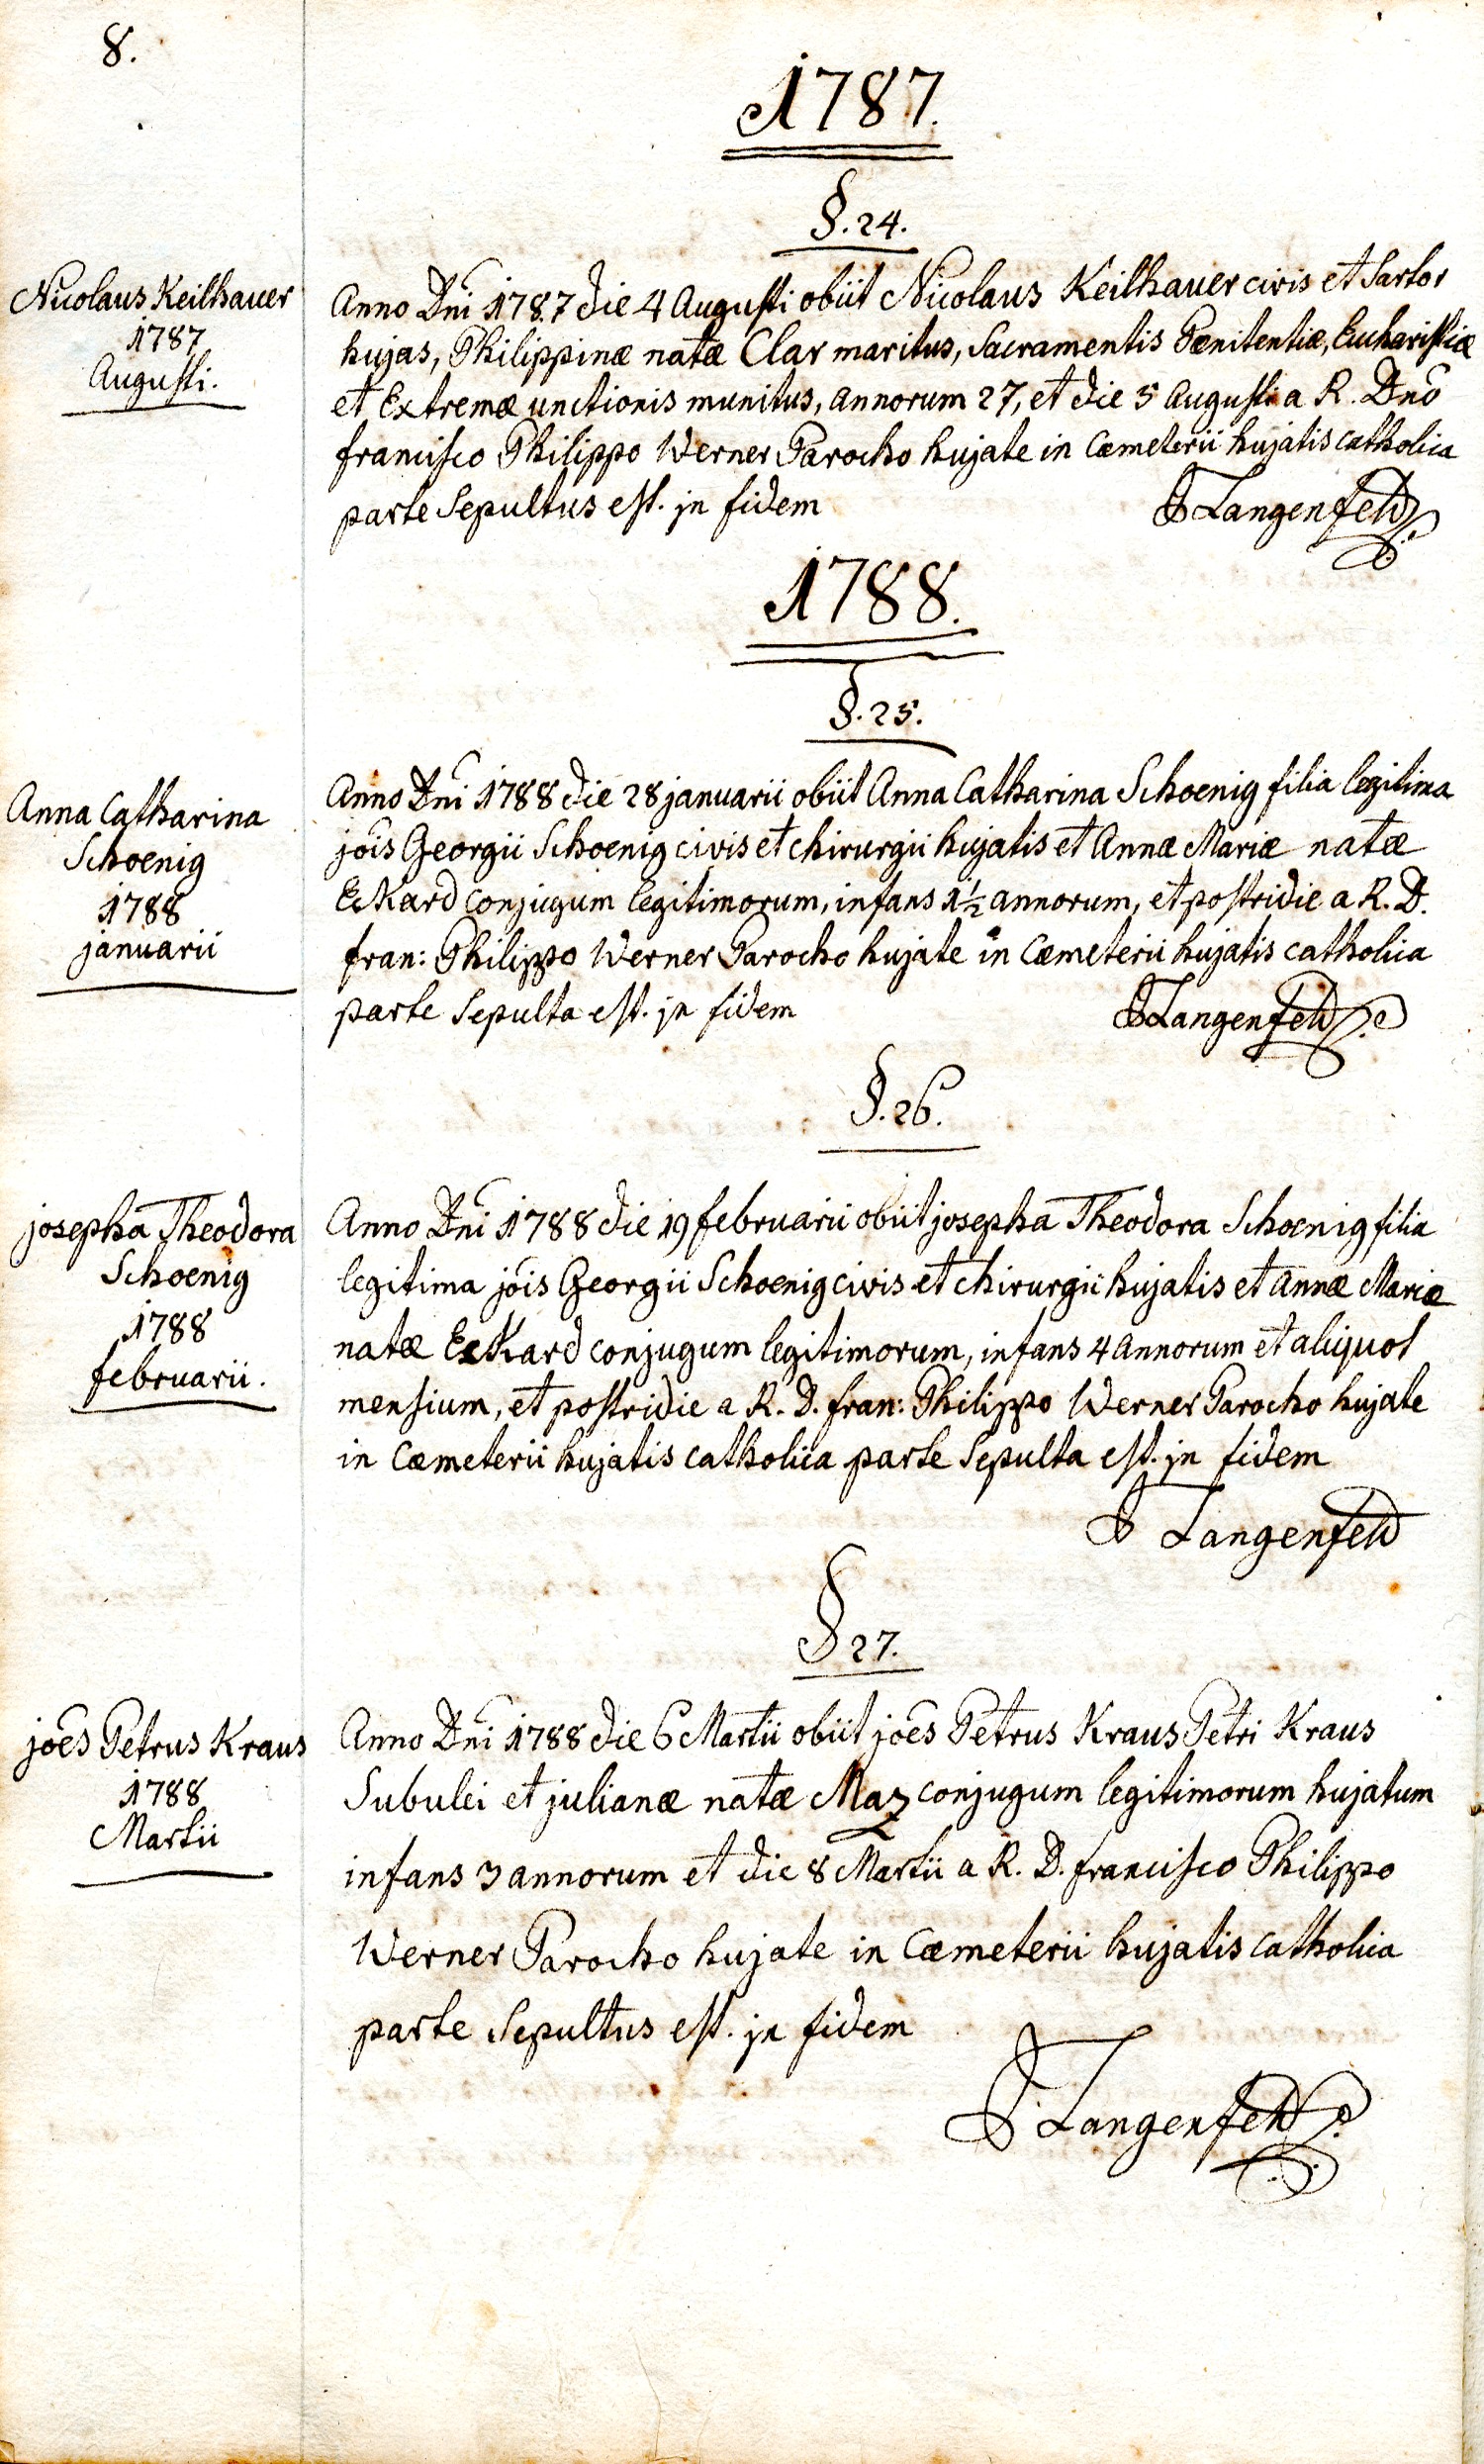 8.
1787.
§. 24.
Nicolaus Keilhauer
1787
Augusti.
Anno Dni 1787 die 4 Augusti obiit Nicolaus Keilhauer civis et Sartor
hujas, Philippinæ natæ Clar maritus, Sacramentis Pœnitentiæ, Eucharistiæ
et Extremæ unctionis munitus, annorum 27, et die 5 Augusti a R. Dno
francisco Philippo Werner Parocho hujate in Cœmeterii hujatis catholica
parte Sepultus est. jn fidem
J Langenfeld
1788.
§. 25.
Anna Catharina
Schoenig
1788
januarii
Anno Dni 1788 die 28 januarii obiit Anna Catharina Schoenig filia legitima
jois Georgii Schoenig civis et chirurgii hujatis et Annæ Mariæ natæ
Eckard conjugum legitimorum, infans 1½ annorum, et postridie a R. D.
fran: Philippo Werner Parocho hujate in Cœmeterii hujatis catholica
parte Sepulta est. jn fidem
J Langenfeld
§. 26.
josepha Theodora
Schoenig
1788
februarii.
Anno Dni 1788 die 19 februarii obiit josepha Theodora Schoenig filia
legitima jois Georgii Schoenig civis et chirurgii hujatis et Annæ Mariæ
natæ Eckard conjugum legitimorum, infans 4 annorum et aliquot
mensium, et postridie a R. D. fran: Philippo Werner Parocho hujate
in Cœmeterii hujatis catholica parte Sepulta est. jn fidem
J Langenfeld
§ 27.
joēs Petrus Kraus
1788
Martii
Anno Dni 1788 die 6 Martii obiit joēs Petrus Kraus Petri Kraus
Subulci et julianæ natæ Maz conjugum legitimorum hujatum
infans 3 annorum et die 8 Martii a R. D. francisco Philippo
Werner Parocho hujate in Cœmeterii hujatis catholica
parte Sepultus est. jn fidem
J. Langenfeld